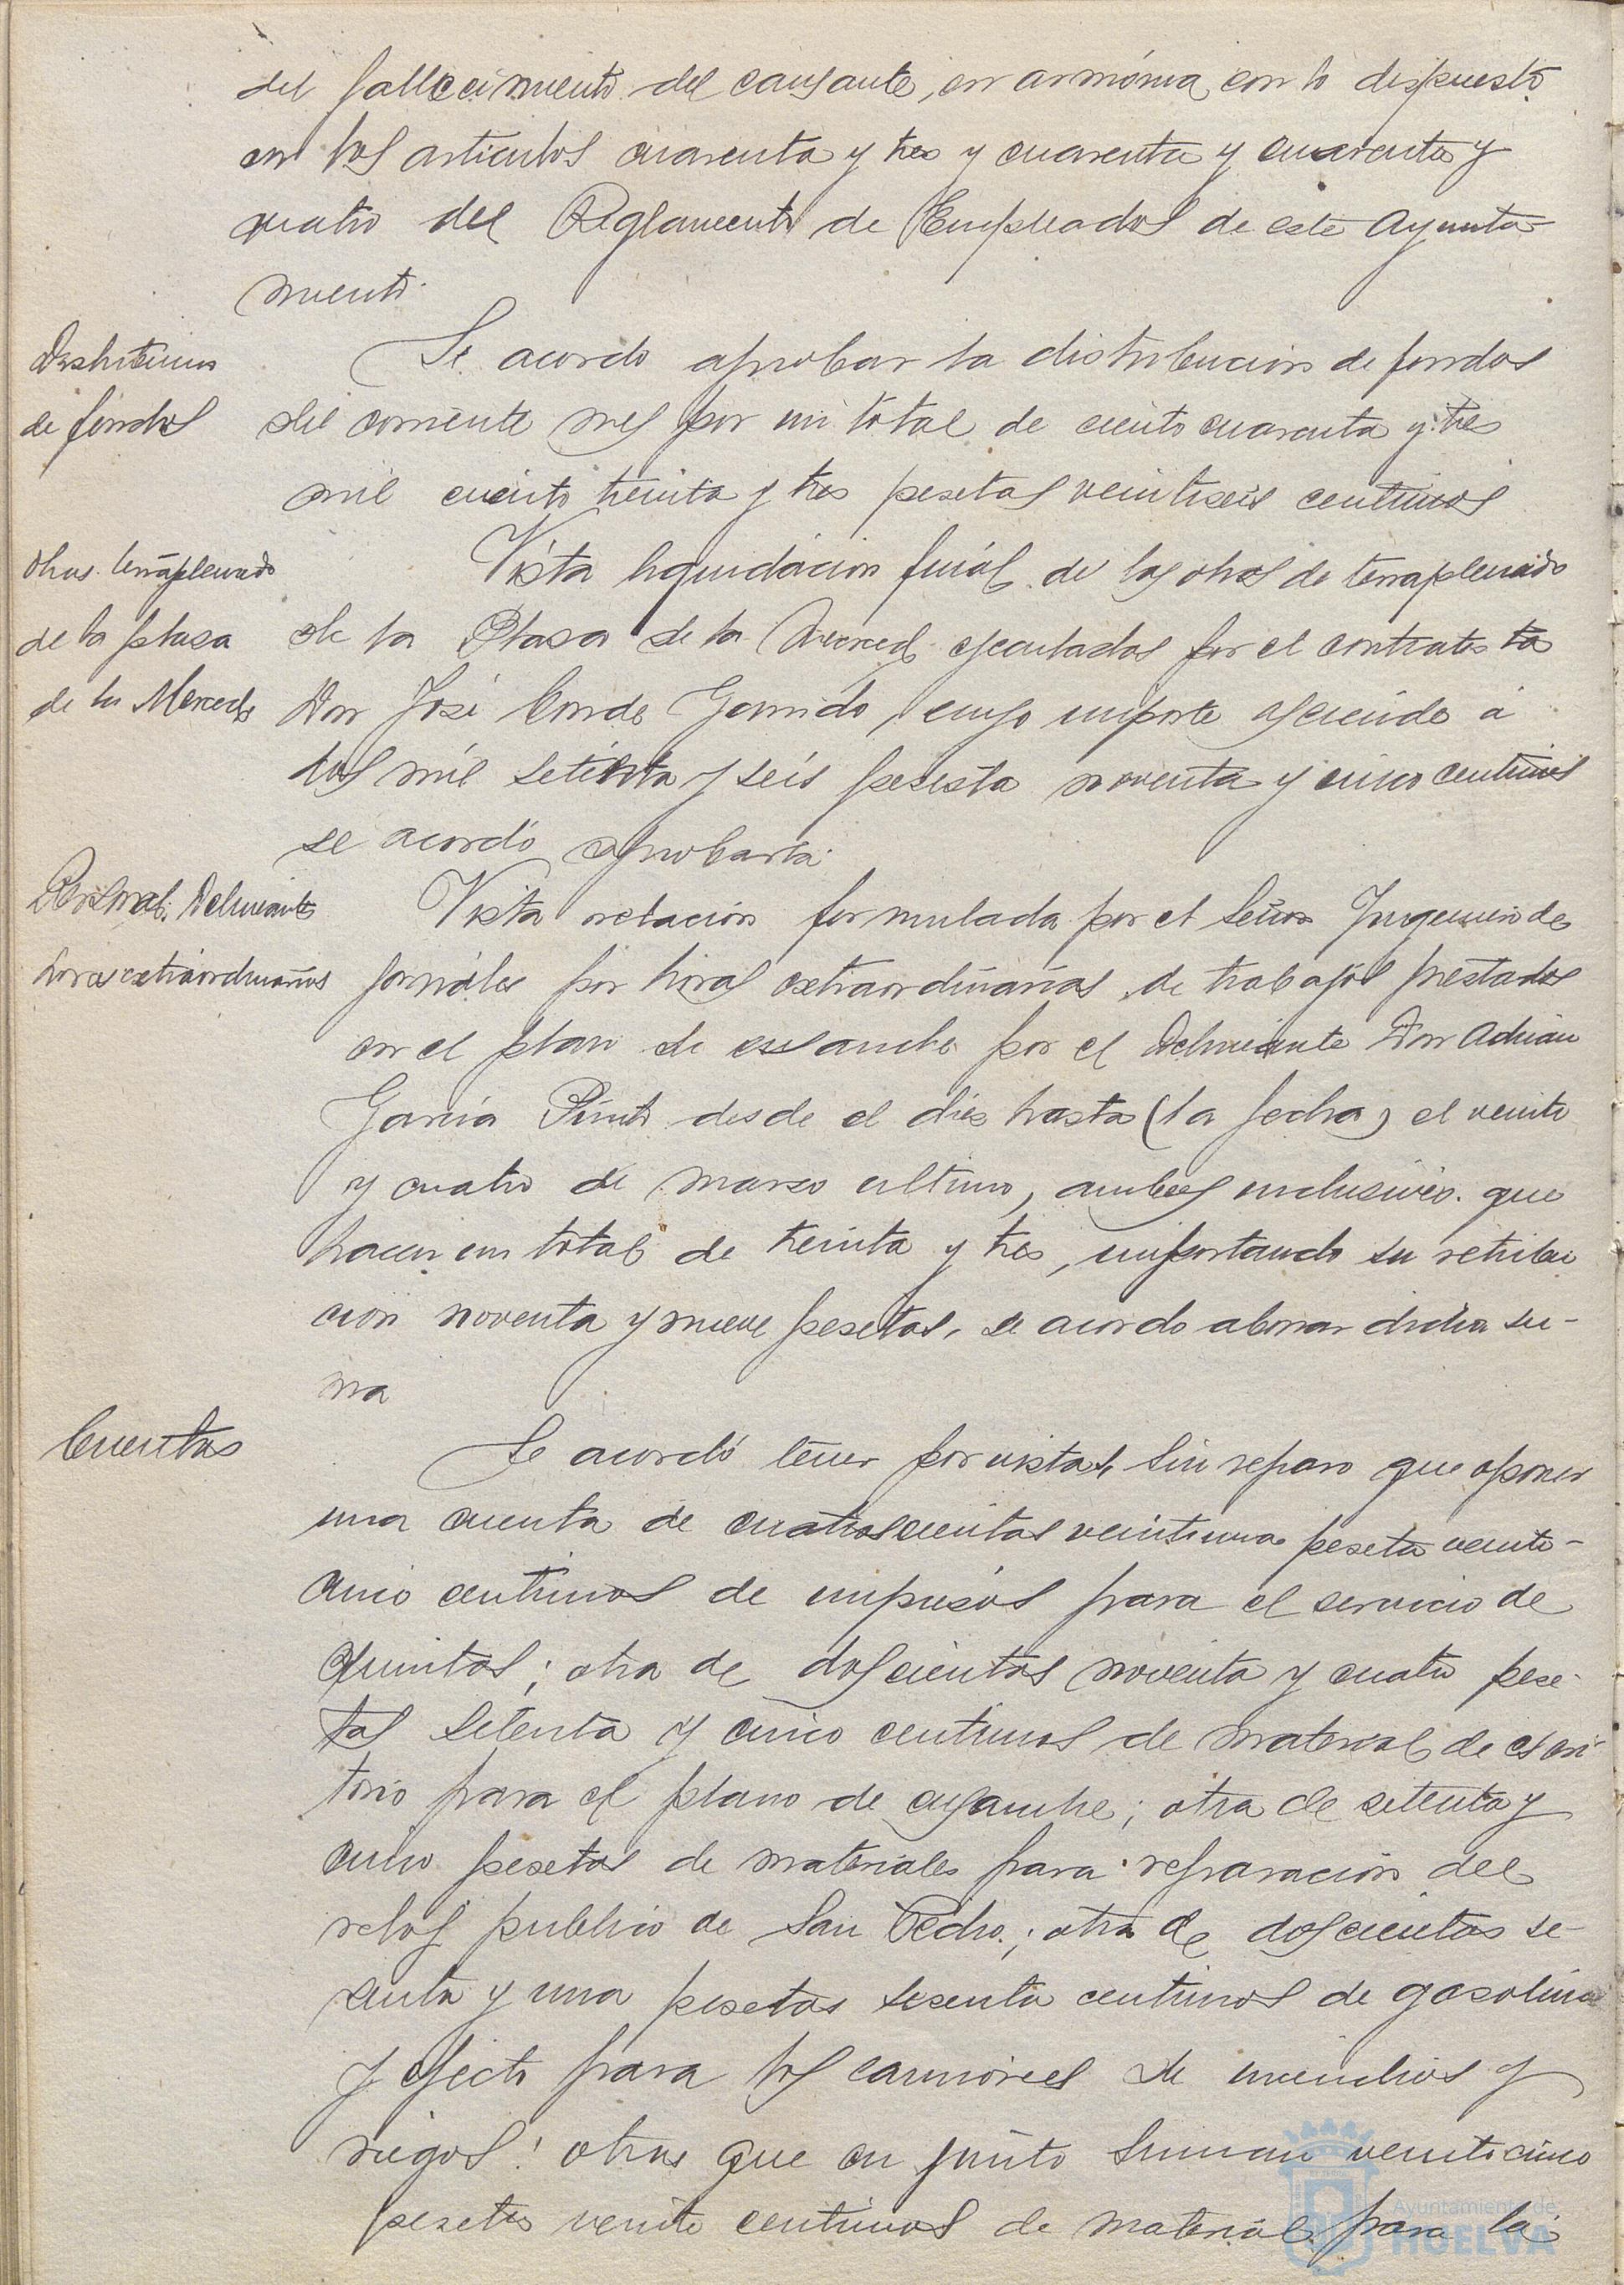 del fallecimiento del causante, en armónia con lo dispuesto
en los articulos cuarenta y tres y cuarenta y cuarenta y
cuatro del Reglamento de Empleados de este Ayunta-
miento.
Distribucion
de fondos
Se acordo aprobar la distribucion de fondos
del corriente mes por un total de ciento cuarenta y tres
mil ciento treinta y tres pesetas veintiseis centimos
obras terraplenado
de la plasa
de la Merced
Vista liquidacion final de las obras de terraplenado
de la Plasa de la Merced ejecutadas por el contratista
Don José Conde Garrido, cuyo importe asciende a
dos mil setenta y seis peseta noventa y cinco centimos
se acordó aprobarla.
Personal. Delineante
horas extraordinarias
Vista relación formulada por el Señor Ingeniero de
jornales por horas extraordinarias de trabajos prestados
en el plan de ensanche por el Delineante Don Adrian
Garcia Pinto desde el dies hasta (la fecha) el veinte
y cuatro de marso ultimo, ambos inclusives. que
hacen un total de treinta y tres, importando su retribu
cion noventa y nueve pesetas, se acordo abonar dicha su-
ma
Cuentas
Se acordó tener por vistas, sin reparo que oponer
una cuenta de cuatroscientas veintiuna peseta veinte-
cinco centimos de impresos para el servicio de
Quintas; otra de doscientas noventa y cuatro pese-
tas setenta y cinco centimos de material de escri-
torio para el plano de ensanche; otra de setenta y
cinco pesetas de materiales para reparacion del
reloj publico de San Pedro.; otra de doscientas se-
senta y una pesetas sesenta centimos de gasolina
y efecto para los camiones de incendios y
riegos; otras que en junto suman veinticinco
pesetas veinte centimos de material para la
Ayuntamiento de
HUELVA